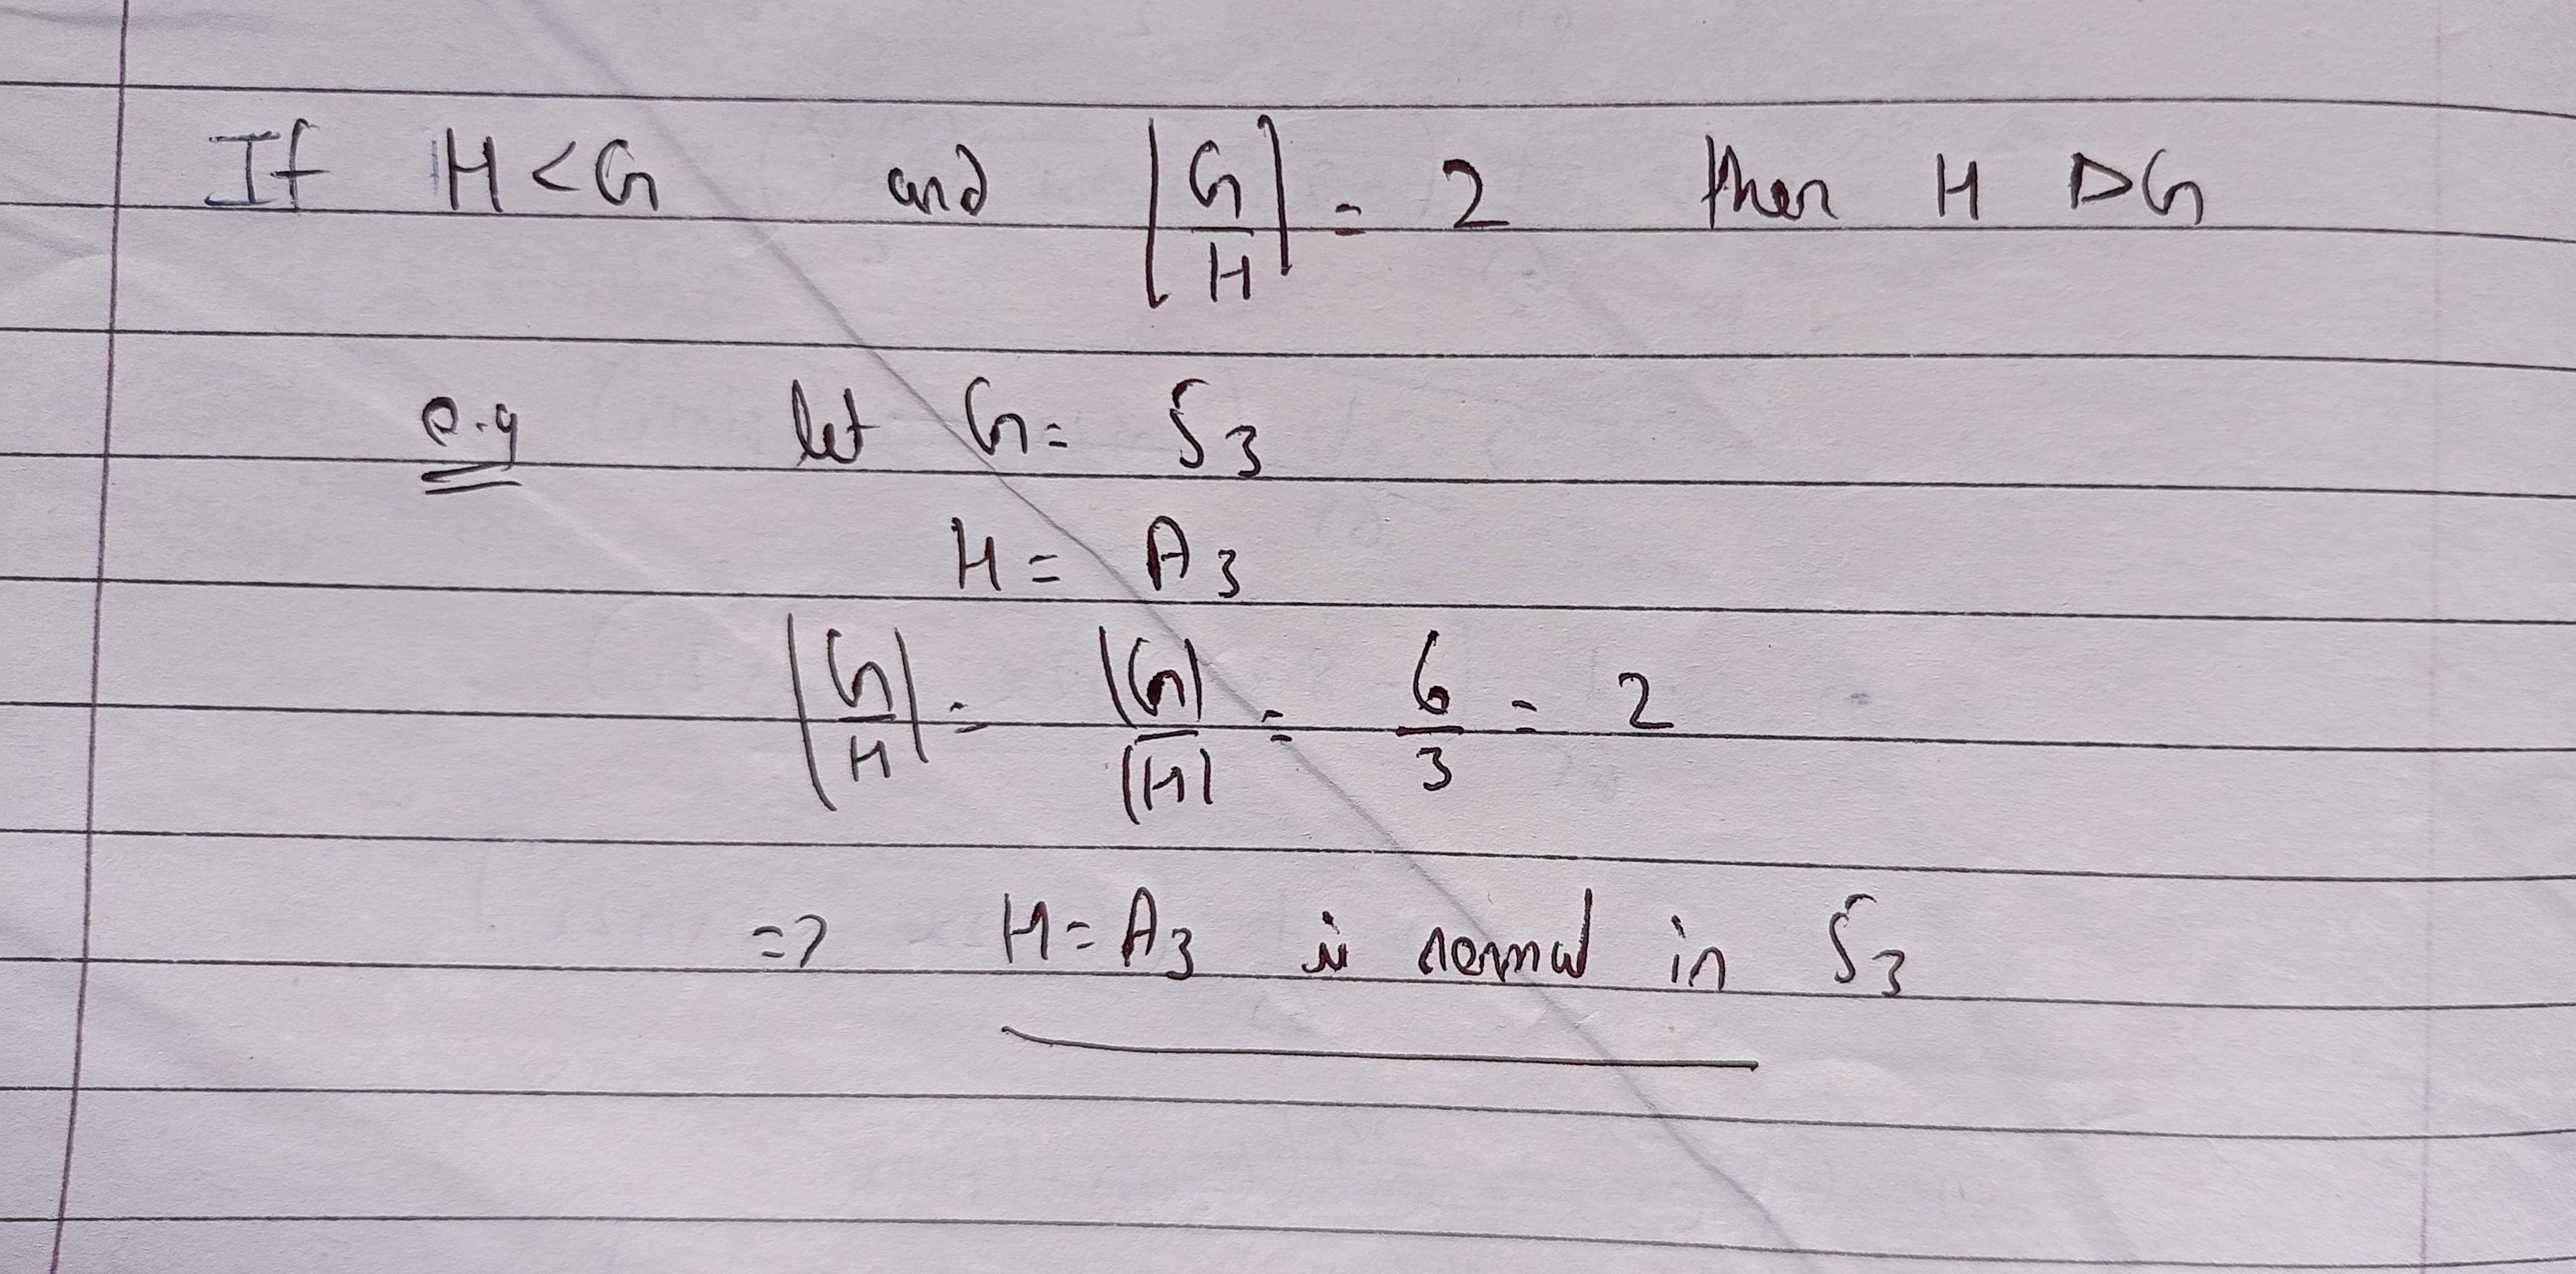 If H < G and |G/H| = 2 then H ▷ G
e.g let G = S₃
H = A₃
|G/H| = |G|/|H| = 6/3 = 2
=> H = A₃ is normal in S₃